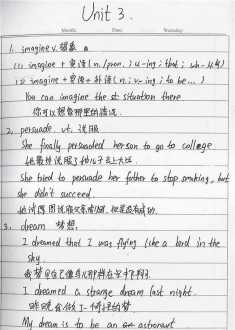 Unit 3.
1. imagine v. 想象
(1) imagine + 宾语 (n./pron.; v-ing; that; wh-从句)
(2) imagine + 宾语 + 补语 (n.; v-ing; to be...)
You can imagine the situation there.
你可以想象那里的情况.
2. persuade vt. 说服
She finally persuaded her son to go to college.
她最终说服了她儿子去上大学.
She tried to persuade her father to stop smoking, but
she didn't succeed.
她试图说服父亲戒烟, 但是没有成功.
3. dream 梦想
I dreamed that I was flying like a bird in the
sky.
我梦见自己像鸟儿那样在空中飞翔.
I dreamed a strange dream last night.
昨晚我做了一个奇怪的梦
My dream is to be an astronaut